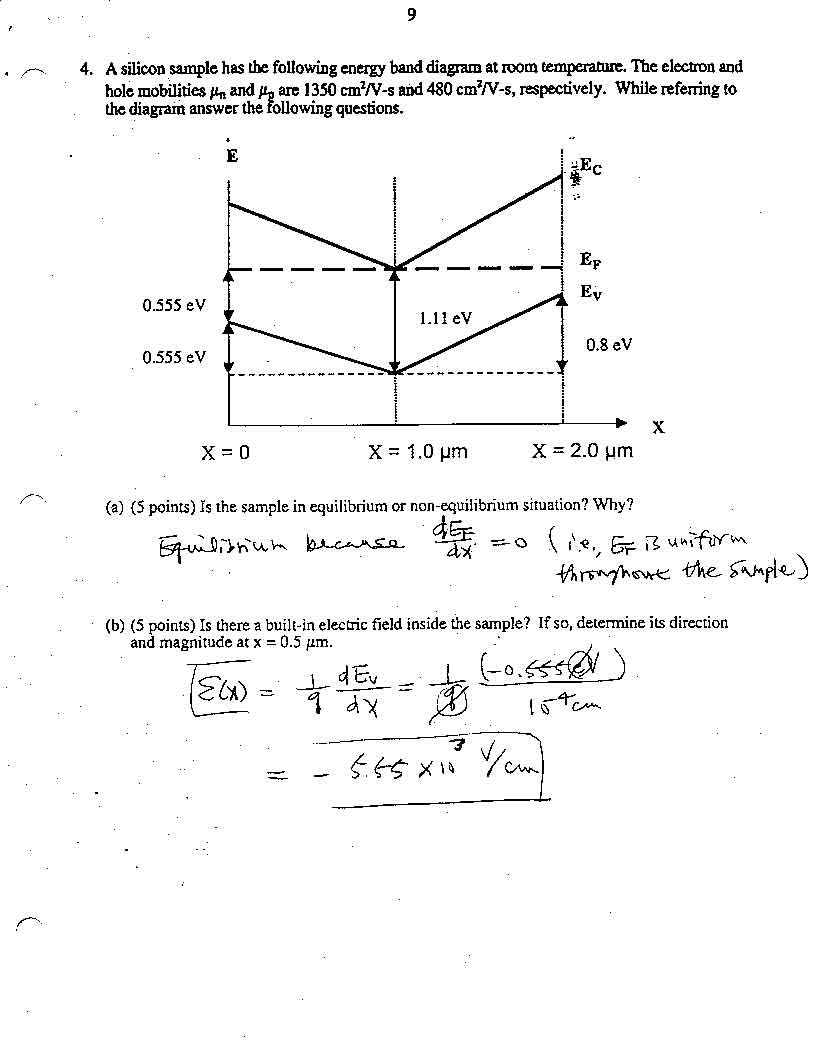 9
4. A silicon sample has the following energy band diagram at room temperature. The electron and
hole mobilities μn and μp are 1350 cm²/V-s and 480 cm²/V-s, respectively. While referring to
the diagram answer the following questions.
E
EC
EF
EV
0.555 eV
1.11 eV
0.8 eV
0.555 eV
X
X = 0 X = 1.0 μm X = 2.0 μm
(a) (5 points) Is the sample in equilibrium or non-equilibrium situation? Why?
Equilibrium because dEF/dx = 0 (i.e., EF is uniform
throughout the sample)
(b) (5 points) Is there a built-in electric field inside the sample? If so, determine its direction
and magnitude at x = 0.5 μm.
Ɛ(x) = 1/q dEv/dx = 1/q (-0.555 eV)/10⁻⁴cm
= - 5.55 x 10³ V/cm